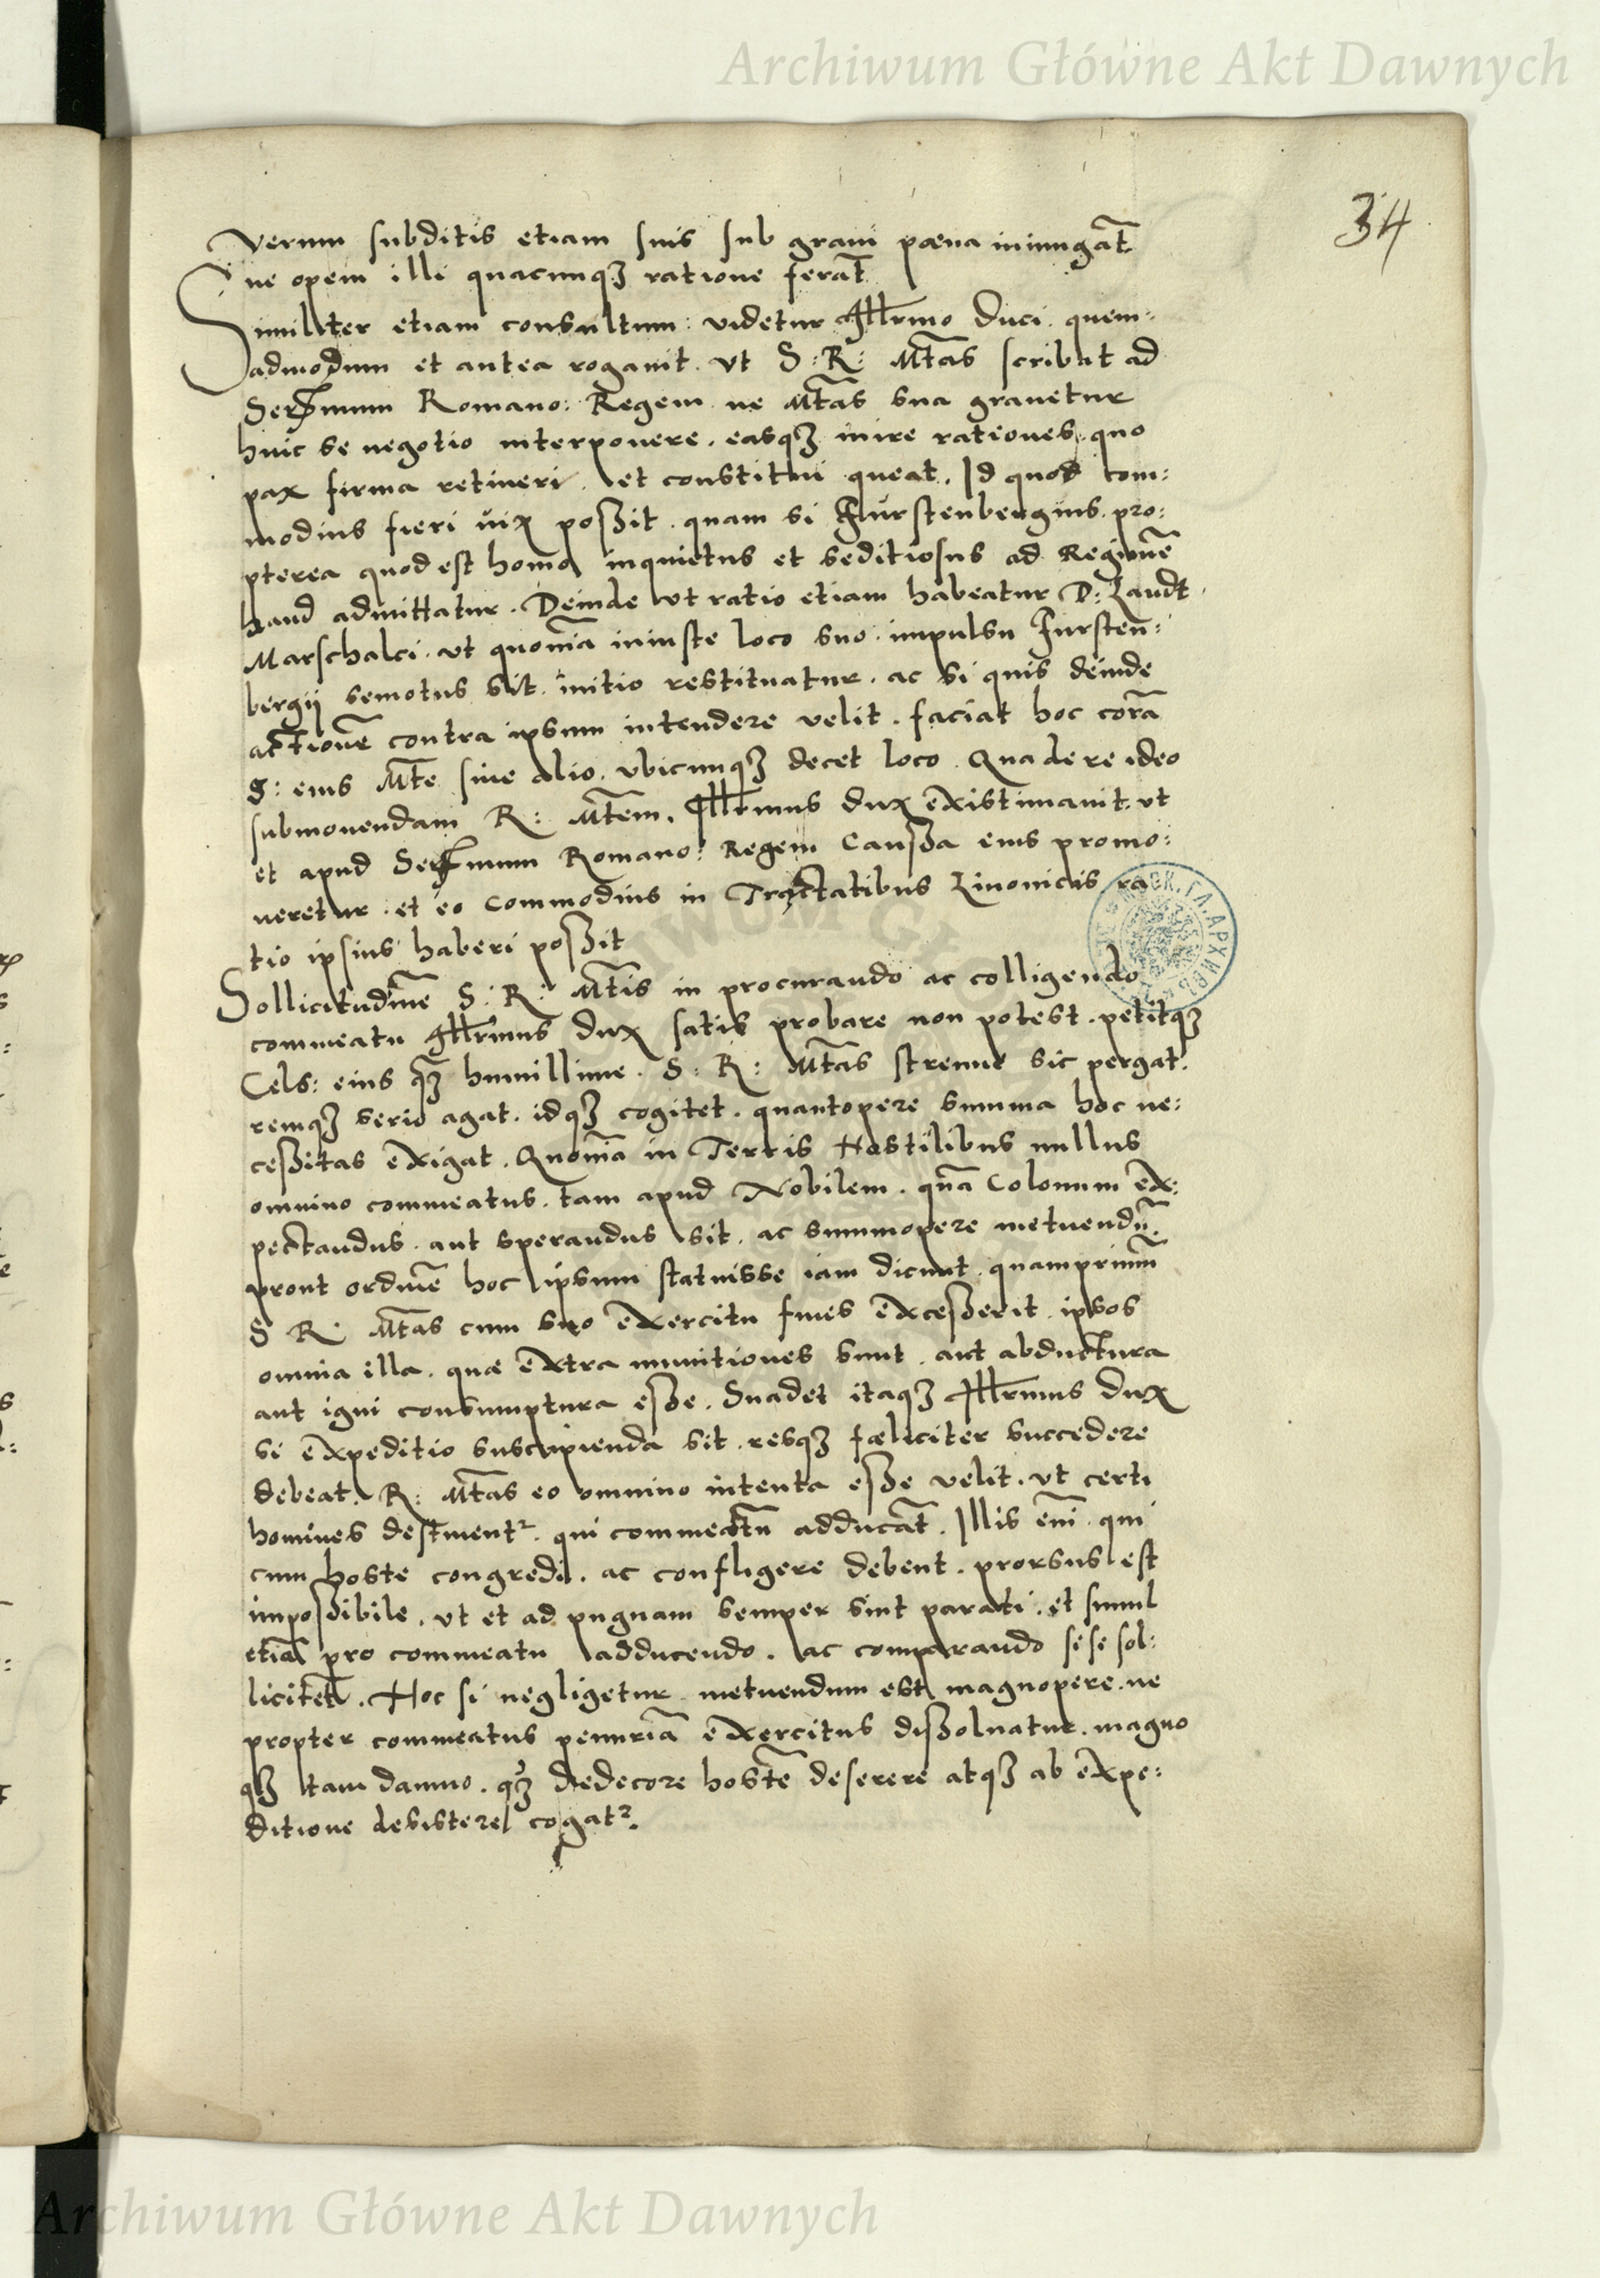 Archiwum Główne Akt Dawnych
34
verum subditis etiam suis sub gravi pœna iniungāt
ne opem illi quacunqꝫ ratione ferāt
Similiter etiam consultum: videtur Illr̄mo Duci. quem:
admodum et antea rogavit. vt S: R: Mt̄as scribat ad
Ser̄mum Romano: Regem ne Mt̄as sua gravetur
huic se negotio interponere. easqꝫ inire rationes. quo
pax firma retineri. et constitui queat. Id quod com:
modius fieri vix poßit. quam si Fürstenbergius. pro:
pterea quod est homo inquietus et seditiosus ad Regimē
haud admittatur. Deinde vt ratio etiam habeatur D: Landt
Marschalci. vt quoniā iniuste loco suo. impulsu Fursten:
bergij semotus sit. initio restituatur. ac si quis deinde
actionē contra ipsum intendere velit. faciat hoc corā
S: eius Mt̄e sive alio. vbicunqꝫ decet loco. Qua de re ideo
submonendam R: Mt̄em. Illr̄mus Dux existimavit. vt
et apud Ser̄mum Romano: Regem Caußa eius promo:
veretur. et eo commodius in Tractatibus Livonicis ra
tio ipsius haberi poßit
Sollicitudinē S: R: Mt̄is in procurando ac colligendo
commeatu Illr̄mus Dux satis probare non potest. petitqꝫ
Cels: eius qꝫ humillime. S: R: Mt̄as strenue sic pergat.
remqꝫ serio agat. idqꝫ cogitet. quantopere summa hoc ne:
ceßitas exigat. Quoniā in Terris Hostilibus nullus
omnino commeatus. tam apud Nobilem. quā Colonum ex:
pectandus. aut sperandus sit. ac summopere metuendū.
prout ordinē hoc ipsum statuisse iam dicunt. quamprimū
S R: Mt̄as cum suo exercitu fines exceßerit. ipsos
omnia illa. quæ extra munitiones sunt. aut abductura
aut igni consumptura eße. Suadet itaqꝫ Illr̄mus Dux
si expeditio suscipienda sit. resqꝫ fœliciter succedere
debeat. R: Mt̄as eo omnino intenta eße velit. vt certi
homines destinent². qui commeatū adducāt. Illis enī qui
cum hoste congredi. ac confligere debent. prorsus est
impoßibile. vt et ad pugnam semper sint parati. et simul
etiā pro commeatu adducendo. ac comparando sese sol:
licitēt. Hoc si negligetur metuendum est magnopere. ne
propter commeatus penuriā exercitus dißoluatur. magno
qꝫ tam damno. qꝫ dedecore hostē deserere atqꝫ ab expe:
ditione desistere cogat².
Archiwum Główne Akt Dawnych